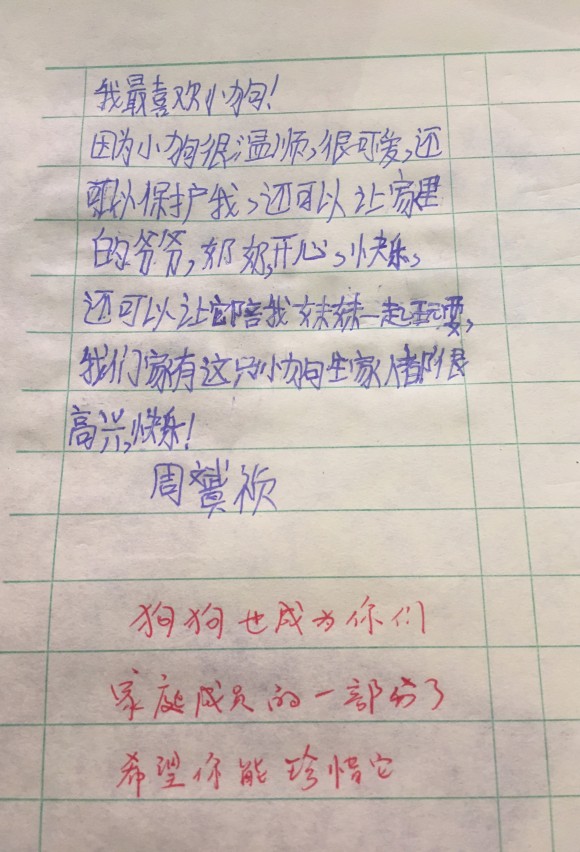 我最喜欢小狗!
因为小狗很温顺,很可爱,还
可以保护我,还可以让家里
的爷爷,奶奶,开心,快乐,
还可以让它陪我妹妹一起玩耍,
我们家有这只小狗全家人都很
高兴,快乐!
周赟祯
狗狗也成为你们
家庭成员的一部份了
希望你能珍惜它